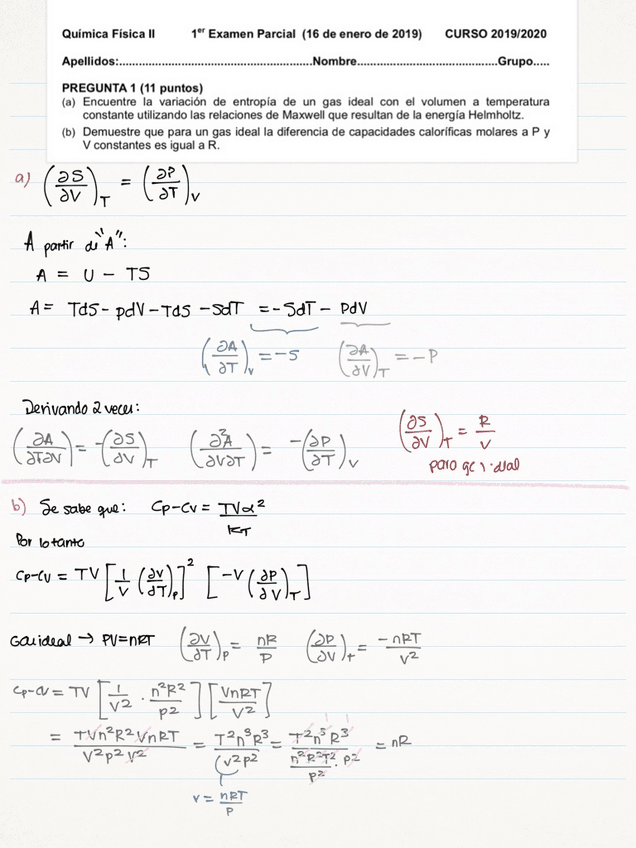 Química Física II 1er Examen Parcial (16 de enero de 2019) CURSO 2019/2020
Apellidos:..........................................................Nombre..........................................Grupo.....
PREGUNTA 1 (11 puntos)
(a) Encuentre la variación de entropía de un gas ideal con el volumen a temperatura
constante utilizando las relaciones de Maxwell que resultan de la energía Helmholtz.
(b) Demuestre que para un gas ideal la diferencia de capacidades caloríficas molares a P y
V constantes es igual a R.
a) (∂S/∂V)_T = (∂P/∂T)_V
A partir de "A":
A = U - TS
A = TdS - pdV - TdS - SdT = -SdT - PdV
(∂A/∂T)_V = -S (∂A/∂V)_T = -P
Derivando 2 veces:
(∂A/∂T∂V) = -(∂S/∂V)_T (∂²A/∂V∂T) = -(∂P/∂T)_V (∂S/∂V)_T = R/V
para gc ideal
b) Se sabe que: Cp-Cv = TVα²/KT
Por lo tanto
Cp-Cv = TV [1/V (∂V/∂T)_P]² [-V (∂P/∂V)_T]
Gas ideal → PV=nRT (∂V/∂T)_P = nR/P (∂P/∂V)_T = -nRT/V²
Cp-Cv = TV [1/V² · n²R²/P²] [VnRT/V²]
= TVn²R²VnRT/V²P²V² = T²n³R³/V²P² = T²n³R³/(n²R²T²/P² · P²) = nR
V = nRT/P